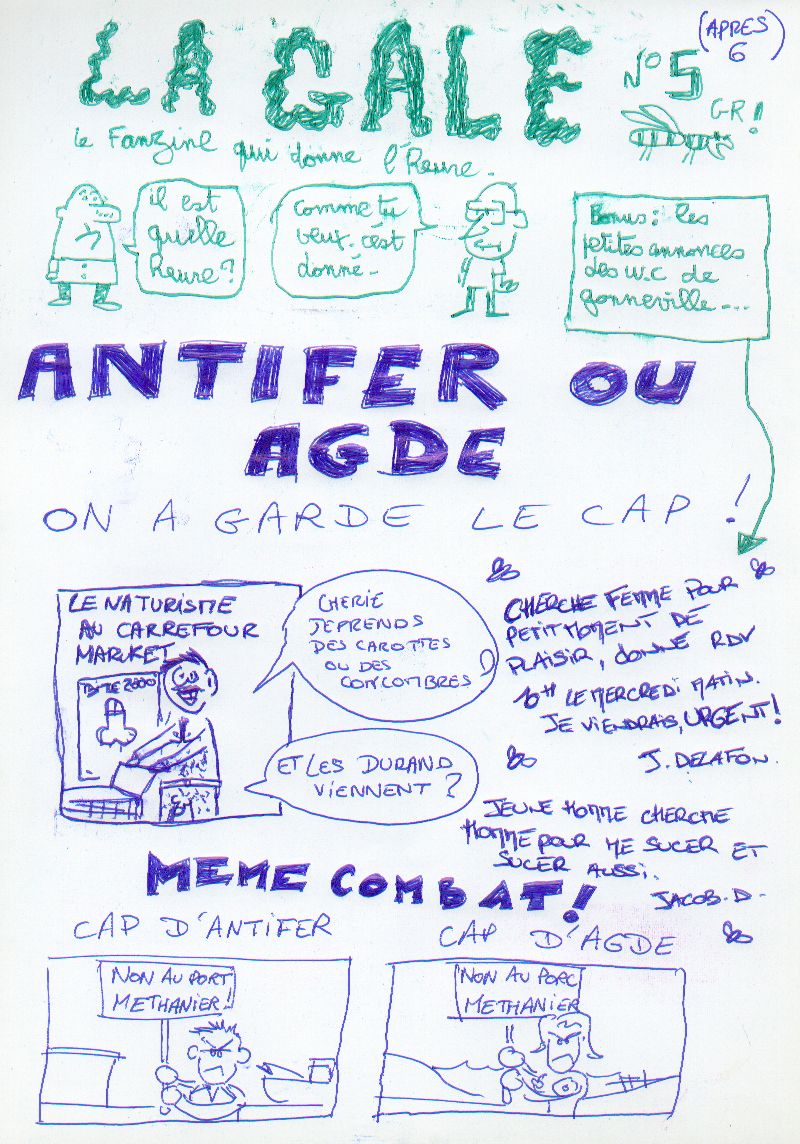 LA GALE
N° 5
(APRES
6)
G-R!
le Fanzine qui donne l'heure.
il est
quelle
heure?
comme tu
veux. c'est
donné.
Bonus: les
petites annonces
des W.C de
gonneville...
ANTIFER OU
AGDE
ON A GARDE LE CAP!
LE NATURISME
AU CARREFOUR
MARKET
CHERIE
JE PRENDS
DES CAROTTES
OU DES
CONCOMBRES?
ET LES DURAND
VIENNENT?
CHERCHE FEMME POUR
PETIT MOMENT DE
PLAISIR, DONNE RDV
10H LE MERCREDI MATIN.
JE VIENDRAIS, URGENT!
J. DELAFON.
JEUNE HOMME CHERCHE
HOMME POUR ME SUCER ET
SUCER AUSSI.
JACOB. D.
MEME COMBAT!
CAP D'ANTIFER
NON AU PORT
METHANIER!
CAP D'AGDE
NON AU PORC
METHANIER